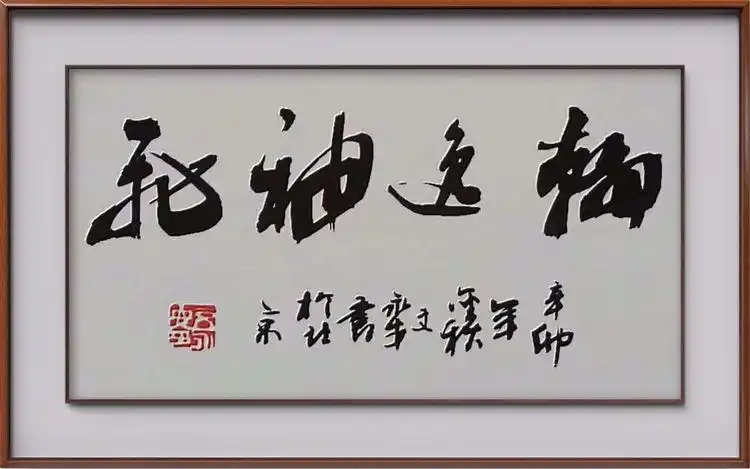 翰逸神飛
辛卯年金秋文書於北京